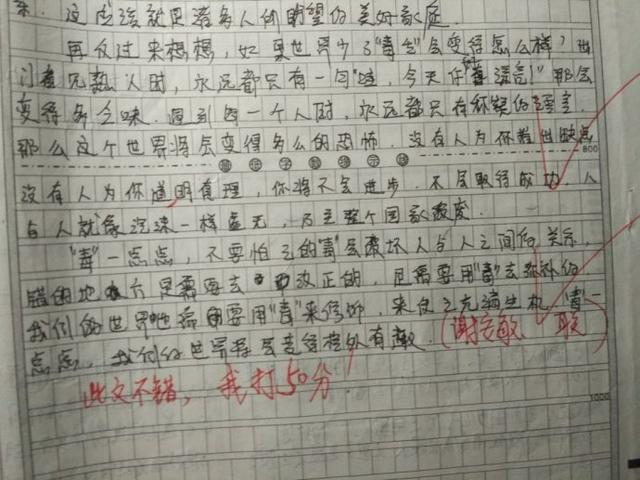 来．这应该就是诸多人们期望的美好家庭
再反过来想想，如果世界少了"毒舌"会变得怎么样？出
门看见熟人时，永远都只有一句"哇，今天你真漂亮！"那会
变得多乏味．遇到每一个人时，永远都只有
那么这个世界将会变得多么的恐怖．没有人为你指出缺点
800
没有人为你道明真理，你将不会进步．不会取得成功．人
与人就像泡沫一样虚无，乃至整个国家
"毒"一点点，不要怕它的"毒"会破坏人与人之间的关系，
错的地方是需要去改正的，是需要用"毒"去弥补的．
我们的世界也需要用"毒"来修饰，来使之充满生机．"毒"一
点点，我们的世界将会变得格外有趣．(谢 敏 联)
此文不错，我打50分
1000